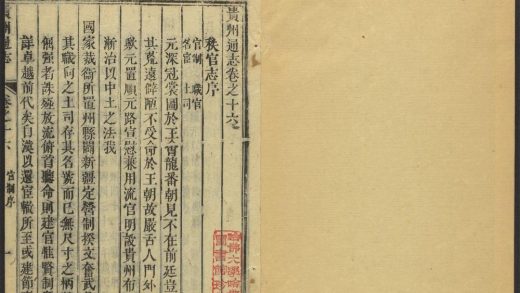 貴州通志卷之十六
秩官志序
官制 職官
名宦 土司
元深冠裳圖於王會龍番朝見不在前廷豈
其荒遠僻陋不受命於王朝故嚴古人門外
歟元置順元路宣慰兼用流官明故貴州布
漸治以中土之法我
國家裁衛所置州縣闢新疆定營制揆文奮武
其職向之土司存其名號而已無尺寸之柄
倔强者誅殛放流俯首聽命則建官惟賢制
詳卓越前代矣自漢以還宦轍所至或建節
貴州通志
卷之十六
官制序
一